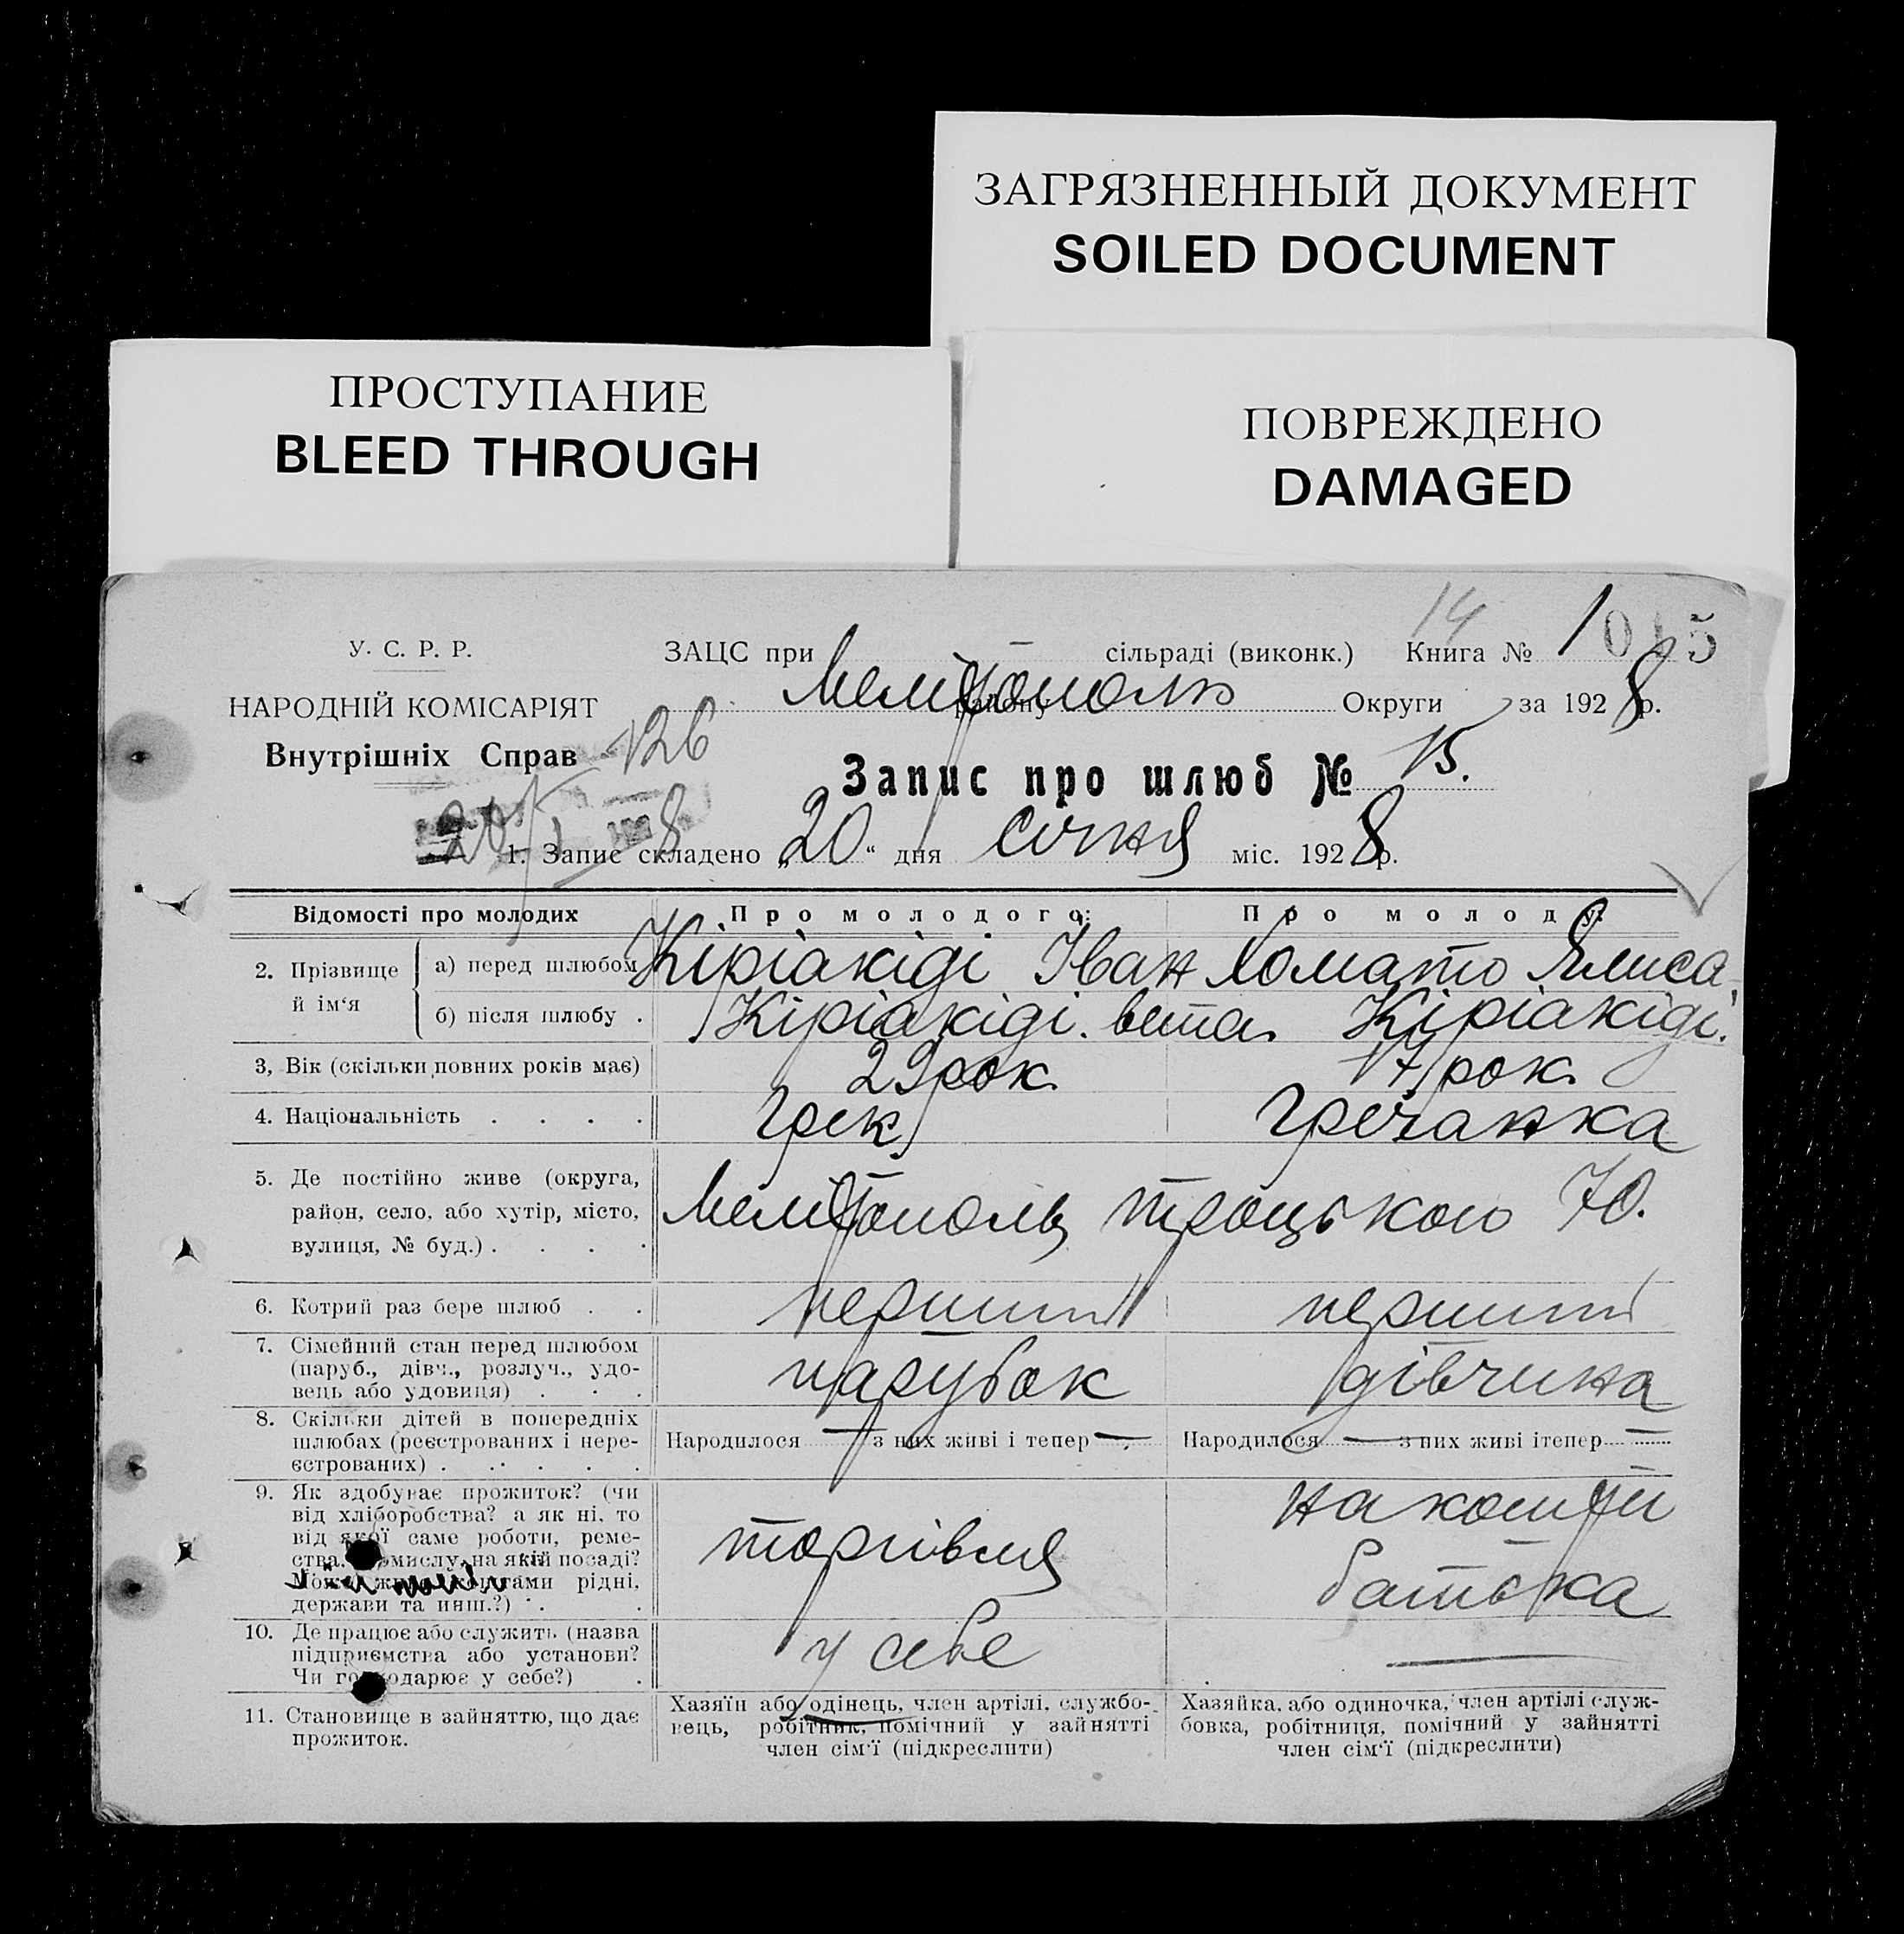 ЗАГРЯЗНЕННЫЙ ДОКУМЕНТ
SOILED DOCUMENT
ПРОСТУПАНИЕ
BLEED THROUGH
ПОВРЕЖДЕНО
DAMAGED
14
У. С. Р. Р.
ЗАЦС при сільраді (виконк.) Книга № 1
НАРОДНІЙ КОМІСАРІЯТ
Мелітополь району Округи за 1928 р.
Внутрішніх Справ
126
Запис про шлюб № 15.
1. Запис складено „20“ дня січня міс. 1928 р.
Відомості про молодих
Про молодого:
Про молоду:
2. Прізвище й ім‘я
а) перед шлюбом
Кіріакіді Іван
Хомато Елиса
б) після шлюбу .
Кіріакіді.
вета. Кіріакіді.
3, Вік (скільки повних років має)
29 рок.
17 рок.
4. Національність . . . .
Грек
Гречанка
5. Де постійно живе (округа,
район, село, або хутір, місто,
вулиця, № буд.) . . . .
Мелітополь Троцького 70.
6. Котрий раз бере шлюб . .
перший
перший
7. Сімейний стан перед шлюбом
(паруб., дівч., розлуч., удо-
вець або удовиця) . . .
парубок
дівчина
8. Скільки дітей в попередніх
шлюбах (реєстрованих і нере-
єстрованих) . . . . .
Народилося — з них живі і тепер —
Народилося — з них живі ітепер —
9. Як здобуває прожиток? (чи
від хліборобства? а як ні, то
від якої саме роботи, реме-
ства, на якій посаді?
рідні,
держави та инш.?) . .
торгівля
на кошти
батька
10. Де працює або служить (назва
підприємства або установи?
Чи у себе?) .
у себе
—
11. Становище в зайняттю, що дає
прожиток.
Хазяїн або одінець, член артілі, службо-
вець, робітник, помічний у зайнятті
член сім‘ї (підкреслити)
Хазяйка, або одиночка, член артілі служ-
бовка, робітниця, помічний у зайнятті
член сім‘ї (підкреслити)